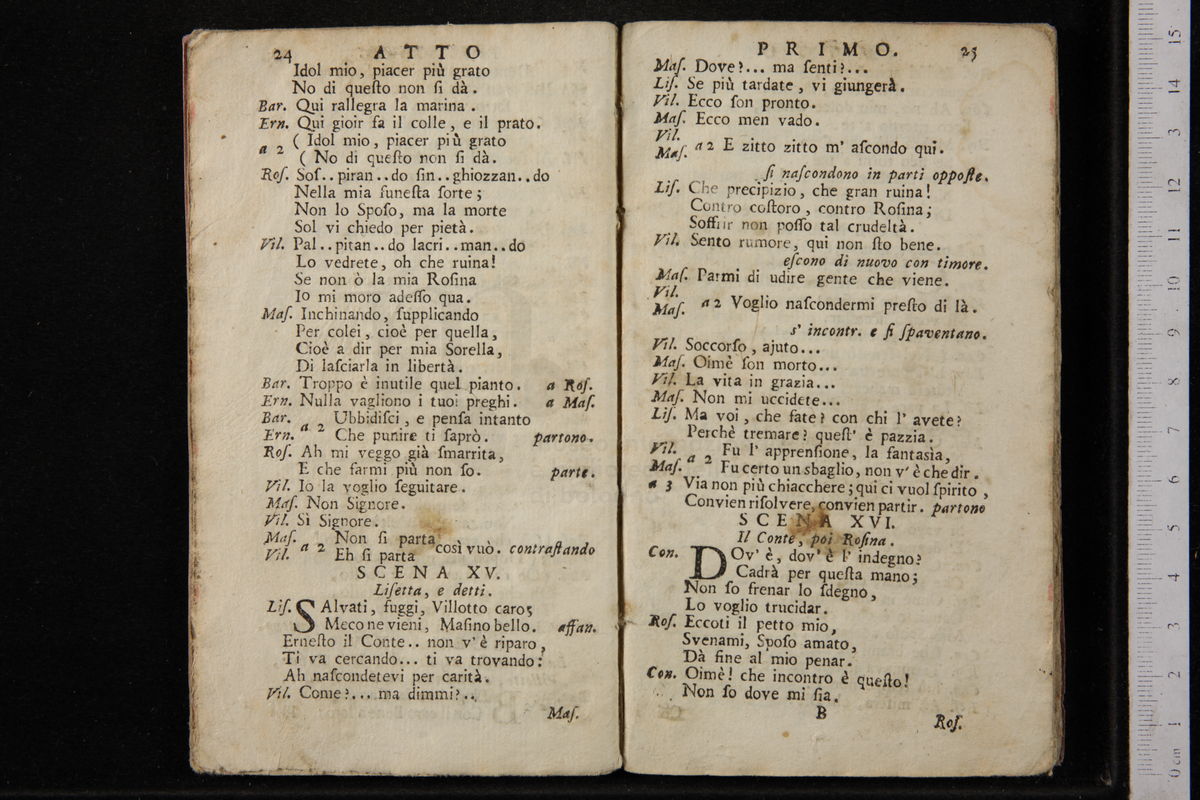 24 ATTO
Idol mio, piacer più grato
No di queſto non ſi dà.
Bar. Qui rallegra la marina.
Ern. Qui gioir fa il colle, e il prato.
a 2 ( Idol mio, piacer più grato
( No di queſto non ſi dà.
Roſ. Soſ..piran..do ſin..ghiozzan..do
Nella mia funeſta ſorte;
Non lo Spoſo, ma la morte
Sol vi chiedo per pietà.
Vil. Pal..pitan..do lacri..man..do
Lo vedrete, oh che ruina!
Se non ò la mia Roſina
Io mi moro adeſſo qua.
Maſ. Inchinando, ſupplicando
Per colei, cioè per quella,
Cioè a dir per mia Sorella,
Di laſciarla in libertà.
Bar. Troppo è inutile quel pianto. a Roſ.
Ern. Nulla vagliono i tuoi preghi. a Maſ.
Bar. Ubbidiſci, e penſa intanto
Ern. a 2 Che punire ti ſaprò. partono.
Roſ. Ah mi veggo già ſmarrita,
E che farmi più non ſo. parte.
Vil. Io la voglio ſeguitare.
Maſ. Non Signore.
Vil. Sì Signore.
Maſ. Non ſi parta
Vil. a 2 Eh ſi parta così vuò. contraſtando
SCENA XV.
Liſetta, e detti.
Liſ. SAlvati, fuggi, Villotto caro;
Meco ne vieni, Maſino bello. affan.
Erneſto il Conte.. non v'è riparo,
Ti va cercando... ti va trovando:
Ah naſcondetevi per carità.
Vil. Come?... ma dimmi?..
Maſ.
PRIMO. 25
Maſ. Dove?... ma ſenti?...
Liſ. Se più tardate, vi giungerà.
Vil. Ecco ſon pronto.
Maſ. Ecco men vado.
Vil.
Maſ. a 2 E zitto zitto m'aſcondo qui.
ſi naſcondono in parti oppoſte.
Liſ. Che precipizio, che gran ruina!
Contro coſtoro, contro Roſina;
Soffrir non poſſo tal crudeltà.
Vil. Sento rumore, qui non ſto bene.
eſcono di nuovo con timore.
Maſ. Parmi di udire gente che viene.
Vil.
Maſ. a 2 Voglio naſcondermi preſto di là.
s'incontr. e ſi ſpaventano.
Vil. Soccorſo, ajuto...
Maſ. Oimè ſon morto...
Vil. La vita in grazia...
Maſ. Non mi uccidete...
Liſ. Ma voi, che fate? con chi l'avete?
Perchè tremare? queſt'è pazzia.
Vil. a 2 Fu l'apprenſione, la fantasìa,
Maſ. Fu certo un sbaglio, non v'è che dir.
a 3 Via non più chiacchere; qui ci vuol ſpirito,
Convien riſolvere, convien partir. partono
SCENA XVI.
Il Conte, poi Roſina.
Con. DOv'è, dov'è l'indegno?
Cadrà per queſta mano;
Non ſo frenar lo ſdegno,
Lo voglio trucidar.
Roſ. Eccoti il petto mio,
Svenami, Spoſo amato,
Dà fine al mio penar.
Con. Oimè! che incontro è queſto!
Non ſo dove mi ſia.
B
Roſ.
0 cm 1 2 3 4 5 6 7 8 9 10 11 12 13 14 15